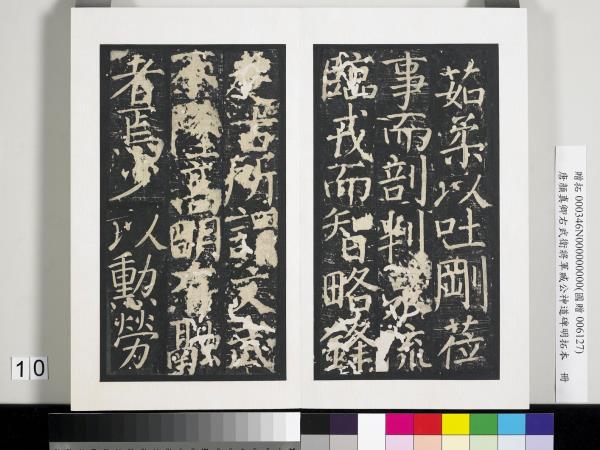 茹柔以吐剛莅
事而剖判流
臨戎而智略鋒
所謂文武
不墜高明有融
者焉少以勳勞
贈拓 000346N000000000(國贈 006127)
唐顏真卿右武衛將軍臧公神道碑明拓本 冊
10